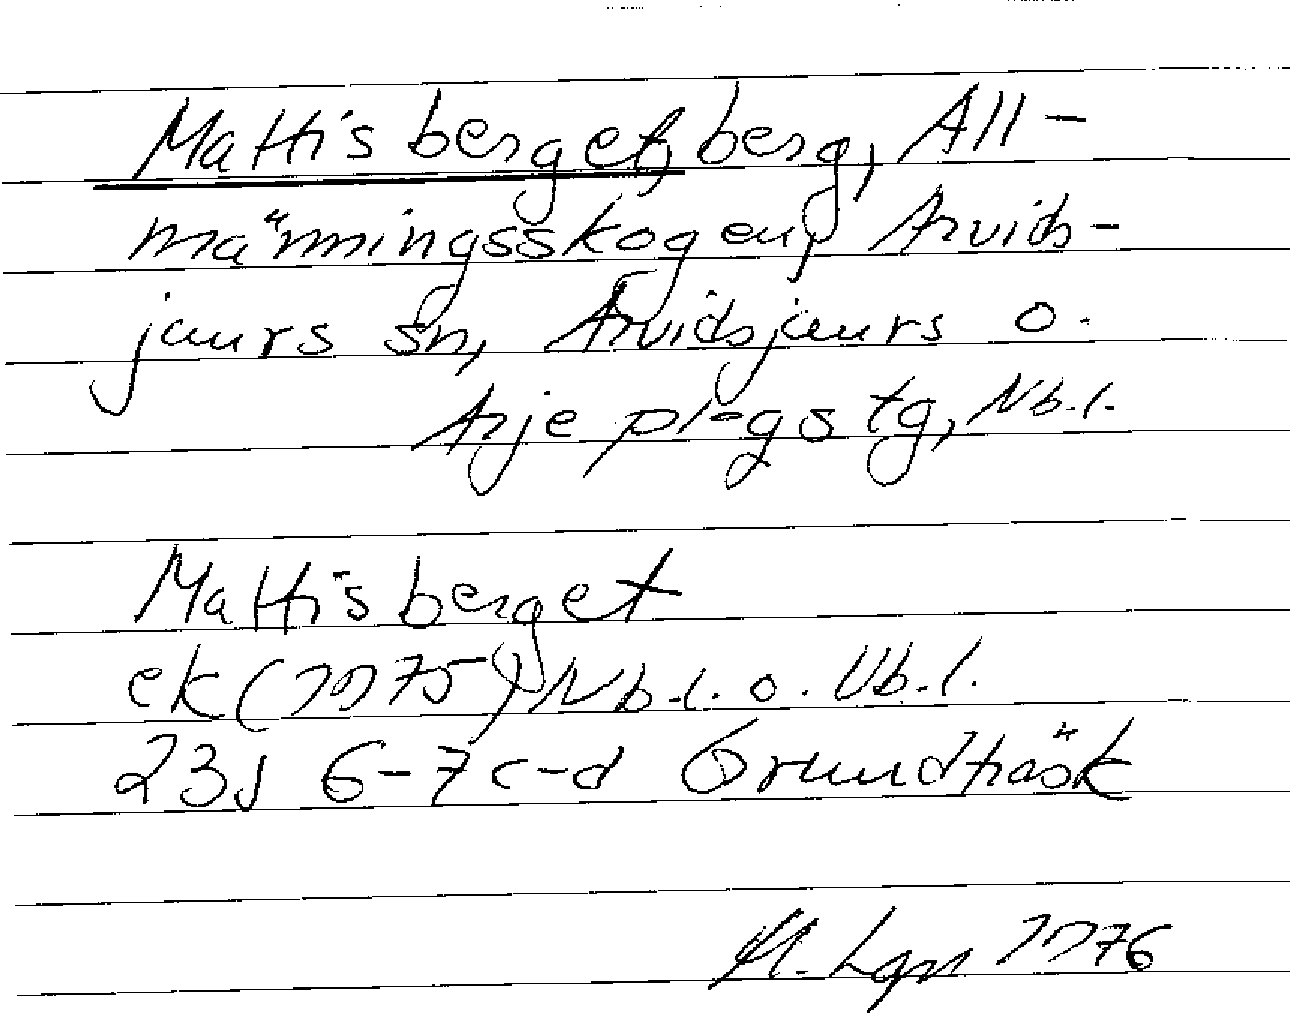 Mattisberget, berg, All-
männingsskogen, Arvids-
jaurs sn, Arvidsjaurs o.
Arjeplogs tg, Nb.l.
Mattisberget
ek (1975) Nb.l. o. Vb.l.
23J 6-7c-d Grundträsk
1976